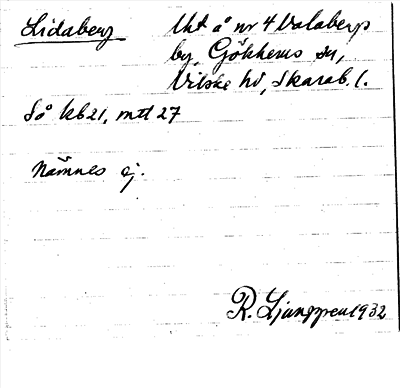 Lidaberg
Uht å nr 4 Valabergs
by, Gökhems sn,
Vilske hd, Skarab. l.
Så kb 21, mtl 27
Nämnes ej.
R. Ljunggren 1932